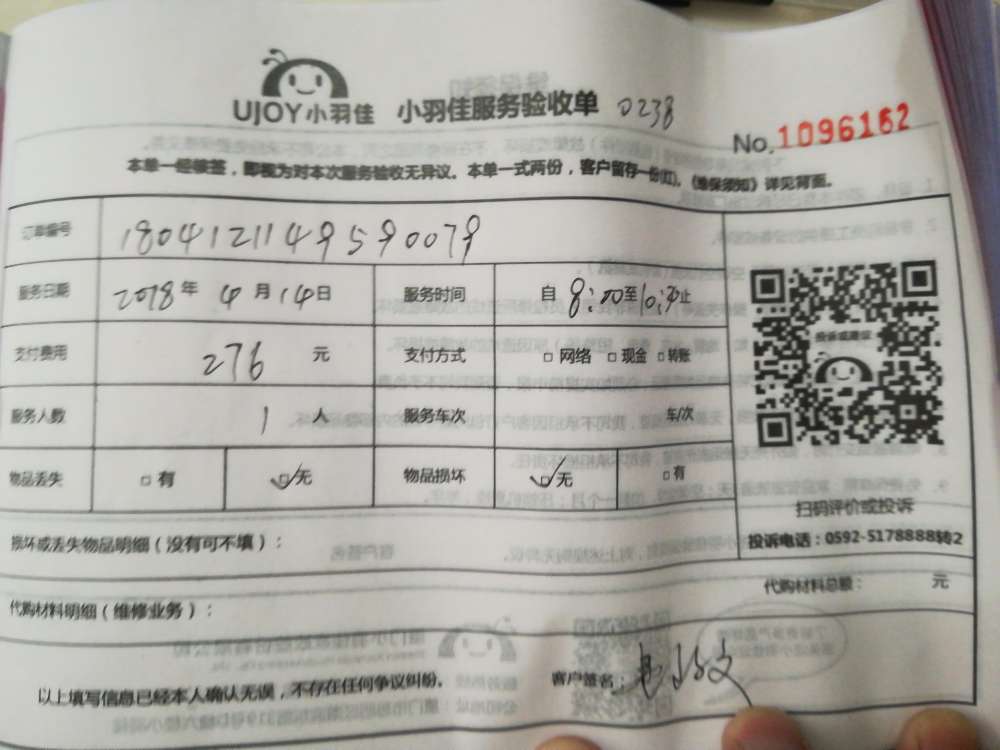 UJOY小羽佳 小羽佳服务验收单 0238
No.1096162
本单一经签,即视为对本次服务验收无异议。本单一式两份,客户留存一份(红)。《维保须知》详见背面。
订单编号 1804121149590079
服务日期 2018年 4月 14日 服务时间 自 8:00至10:30止
支付费用 276 元 支付方式 □网络 □现金 □转账
服务人数 1 人 服务车次 车/次
物品丢失 □有 ☑无 物品损坏 ☑无 □有
投诉或建议
扫码评价或投诉
投诉电话:0592-5178888转2
损坏或丢失物品明细(没有可不填):
代购材料总额: 元
代购材料明细(维修业务):
以上填写信息已经本人确认无误,不存在任何争议纠纷。 客户签名: